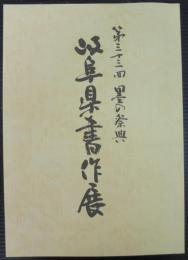 第三十三回 墨の祭典
岐阜県書作展